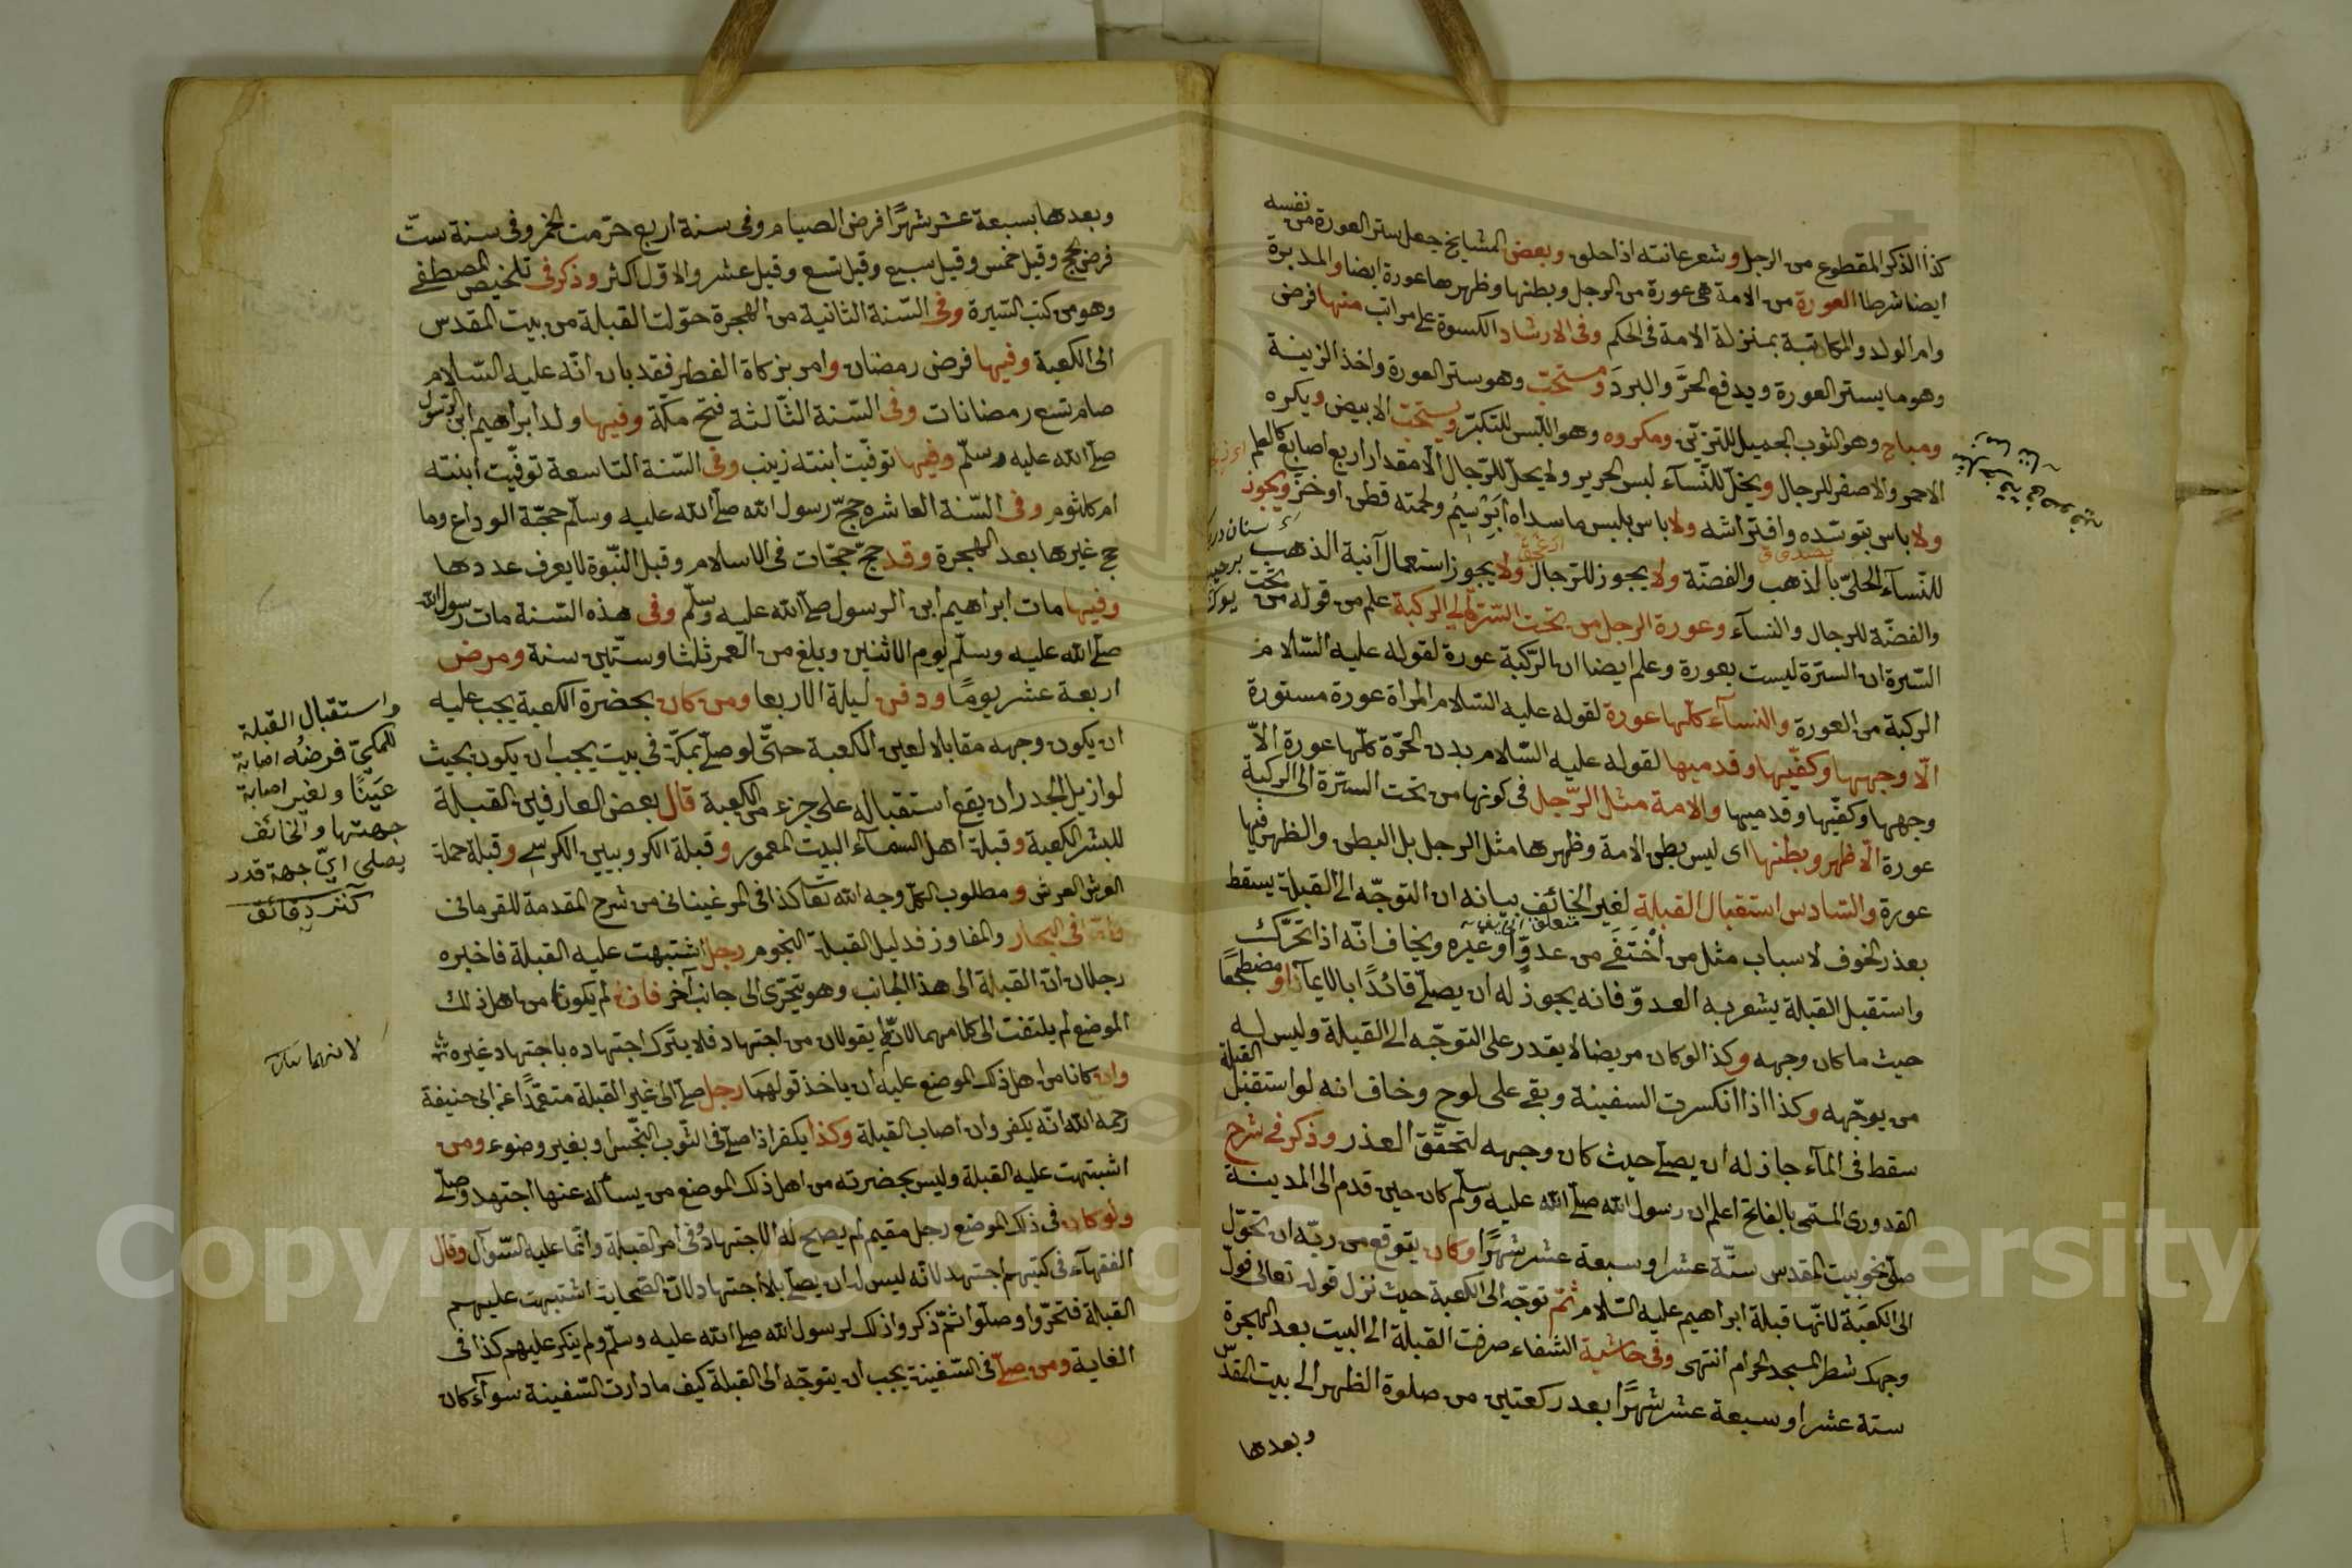 كذا الذكر المقطوع من الرجل وشعر عانته اذا حلق وبعض المشايخ جعل ستر العورة من نفسه
ايضا شرطا العورة من الامة هى عورة من الرجل وبطنها وظهرها عورة ايضا والمدبرة
وام الولد والمكاتبة بمنزلة الامة فى الحكم وفى الارشاد الكسوة على مراتب منها فرض
وهو ما يستر العورة ويدفع الحرَّ والبردَ ومستحبّ وهو ستر العورة واخذ الزينة
ومباح وهو الثوب الجميل للتزيّن ومكروه وهو اللبس للتكبّر ويستحبّ الابيض ويكره
الاحمر والاصفر للرجال ويحلّ للنّسآء لبس الحرير ولا يحلّ للرّجال الّا مقدار اربع اصابع كالعلم
ولا باس بتوسّده وافتراشه ولا باس بلبس ما سداه ابريسُم ولحمته قطن او خزّ ويجوز
للنّسآء الحلىّ بالذهب والفضّة ولا يجوز للرّجال ولا يجوز استعمال آنية الذهب
والفضّة للرجال والنسآء وعورة الرجل من تحت السّرّة الى الركبة علم من قوله من تحت
السّرة ان السرّة ليست بعورة وعلم ايضا ان الرّكبة عورة لقوله عليه السّلام
الركبة من العورة والنسآء كلّها عورة لقوله عليه السّلام المراة عورة مستورة
الّا وجهها وكفّيها وقدميها لقوله عليه السّلام بدن الحرّة كلّها عورة الّا
وجهها وكفّيها وقدميها والامة مثل الرّجل فى كونها من تحت السرّة الى الركبة
عورة الّا ظهر وبطنها اى ليس بطن الامة وظهرها مثل الرجل بل البطن والظهر فيها
عورة والسّادس استقبال القبلة لغير الخائف بيانه ان التوجّه الى القبلة يسقط
بعذر الخوف لاسباب مثل من اختفَى من عدوٍّ او غيره ويخاف انّه اذا تحرّك
واستقبل القبلة يشعر به العدوّ فانه يجوز له ان يصلّى قائدًا بالايمآء او مضطجعًا
حيث ما كان وجهه وكذا لو كان مريضا لا يقدر على التوجّه الى القبلة وليس له
من يوجّهه وكذا اذا انكسرت السفينة وبقى على لوح وخاف انه لو استقبل القبلة
سقط فى المآء جاز له ان يصلّى حيث كان وجهه لتحقّق العذر وذكر فى شرح
القدورى المسمّى بالفاتح اعلم ان رسول الله صلّى الله عليه وسلّم كان حين قدم الى المدينة
صلّى نحو بيت المقدس ستّة عشر او سبعة عشر شهرًا وكان يتوقع من ربّه ان تحوّل
الى الكعبَة لانّها قبلة ابراهيم عليه السّلام ثمّ توجّه الى الكعبة حيث نزل قوله تعالى فولّ
وجهك شطر المسجد الحرام انتهى وفى حاشية الشفاء صرفت القبلة الى البيت بعد الهجرة
ستة عشر او سبعة عشر شهرًا بعد ركعتين من صلوة الظهر الى بيت المقدّس
وبعدها
وبعدها بسبعة عشر شهرًا فرض الصيام وفى سنة اربع حرّمت الخمر وفى سنة ستّ
فرض الحج وقيل خمس وقيل سبع وقيل تسع وقيل عشر والاوّل اكثر وذكر فى تلخيص المصطفى
وهو من كتب السّيرة وفى السّنة الثانية من الهجرة حوّلت القبلة من بيت المقدس
الى الكعبة وفيها فرض رمضان وامر بزكاة الفطر فقد بان انّه عليه السّلام
صام تسع رمضانات وفى السّنة الثّالثة فتح مكّة وفيها ولد ابراهيم ابن الرّسول
صلّى الله عليه وسلّم وفيها توفّيت ابنته زينب وفى السّنة التاسعة توفّيت ابنته
ام كلثوم وفى السّنة العاشره حجّ رسول الله صلّى الله عليه وسلّم حجّة الوداع وما
حج غيرها بعد الهجرة وقد حجّ حجّات فى الاسلام وقبل النّبوّة لا يعرف عددها
وفيها مات ابراهيم ابن الرسول صلّى الله عليه وسلّم وفى هذه السّنة مات رسول الله
صلّى الله عليه وسلّم يوم الاثنين وبلغ من العمر ثلثا وستّين سنة ومرض
اربعة عشر يومًا ودفن ليلة الاربعا ومن كان بحضرة الكعبة يجب عليه
ان يكون وجهه مقابلا لعين الكعبة حتّى لو صلّى بمكّة فى بيت يجب ان يكون بحيث
لو ازيل الجدر ان يقع استقباله على جزء من الكعبة قال بعض العارفين القبلة
للبشر الكعبة وقبلة اهل السمآء البيت المعمور وقبلة الكروبيين الكرسى وقبلة حملة
العرش العرش ومطلوب الكلّ وجه الله تعا كذا فى المرغينانى من شرح المقدمة للقرمانى
وامّا فى البحار والمفاوز فدليل القبلة النجوم رجل اشتبهت عليه القبلة فاخبره
رجلان انّ القبلة الى هذا الجانب وهو يتحرّى الى جانب آخر فان لم يكونا من اهل ذلك
الموضع لم يلتفت الى كلامهما لانّهم يقولان من اجتهاد فلا يترك اجتهاده باجتهاد غيره
وان كانا من اهل ذلك الموضع عليه ان ياخذ قولهما رجل صلّى الى غير القبلة متعمّدًا عن ابى حنيفة
رحمه الله انّه يكفر وان اصاب القبلة وكذا يكفر اذا صلّى فى الثّوب النّجس او بغير وضوء ومن
اشتبهت عليه القبلة وليس بحضرته من اهل ذلك الموضع من يساله عنها اجتهد وصلّى
ولو كان فى ذلك الموضع رجل مقيم لم يصحّ له الاجتهاد فى امر القبلة وانّما عليه السّوآل وقال
الفقهآء فى كتبهم اجتهد لانّه ليس له ان يصلّى بلا اجتهاد لانّ الصّحابة اشتبهت عليهم
القبلة فتحرّوا وصلّوا ثمّ ذكروا ذلك لرسول الله صلّى الله عليه وسلّم ولم ينكر عليهم كذا فى
الغاية ومن صلّى فى السّفينة يجب ان يتوجّه الى القبلة كيف ما دارت السّفينة سوآء كان
واستقبال القبلة
للمكىّ فرضه اصابة
عينًا ولغير اصابة
جهتها والخائف
يصلى اىّ جهة قدر
كنز دقائق
Copyright © King Saud University